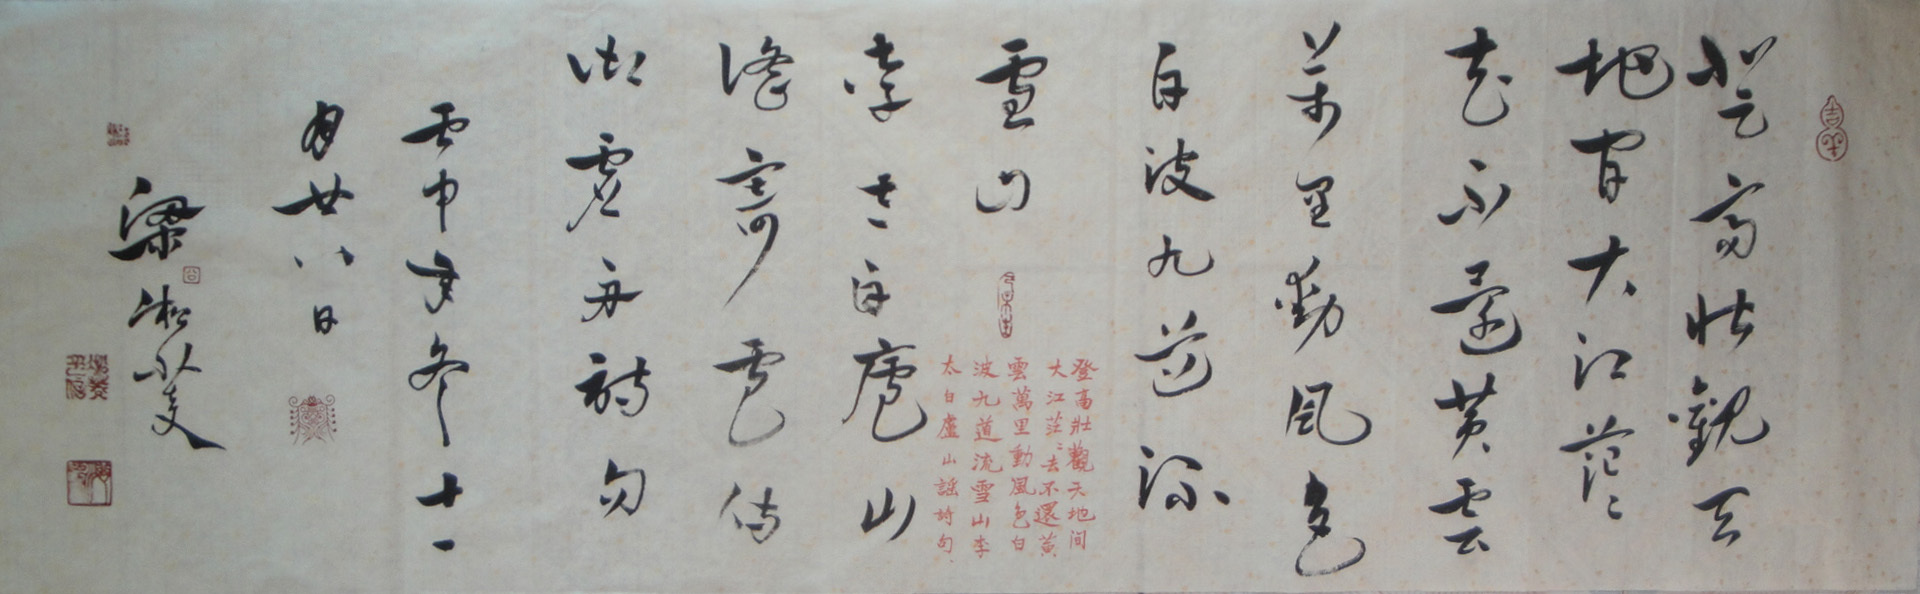 登高壯觀天
地間大江茫〻
去不還黃雲
萬里動風色
白波九道流
雪山
登高壯觀天地間
大江茫〻去不還黃
雲萬里動風色白
波九道流雪山李
太白廬山謠詩句
李太白廬山
謠寄盧侍
御虛舟詩句
丙申年冬十一
月廿八日
梁